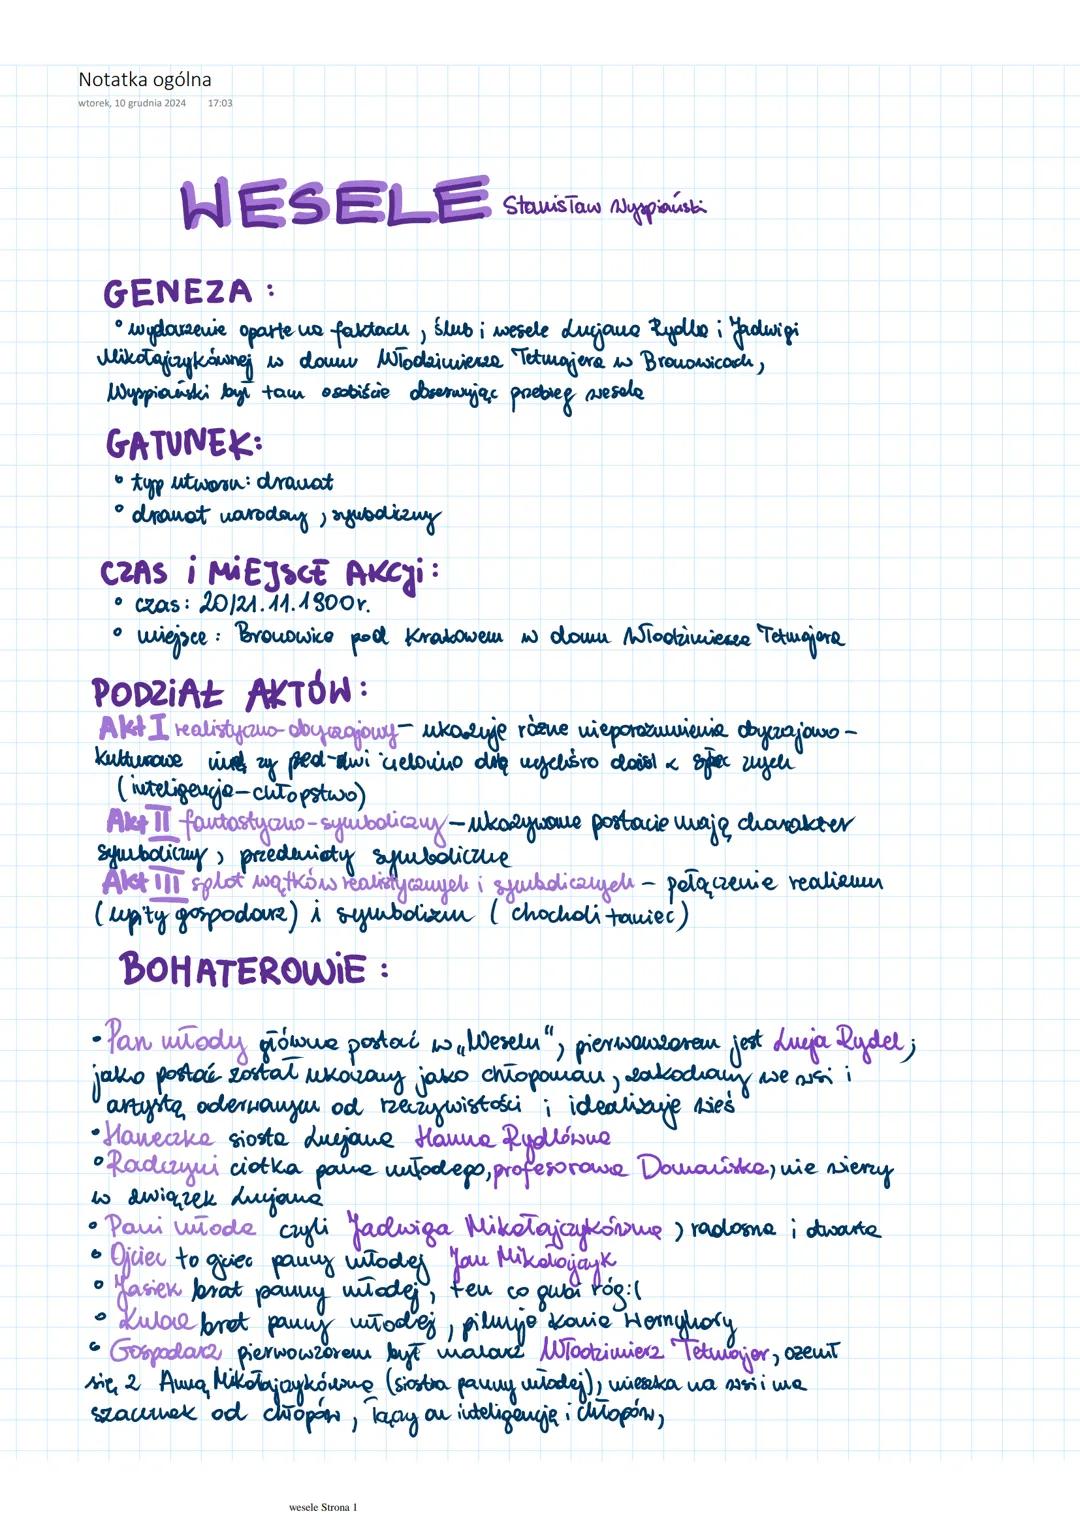 Notatka ogólna
wtorek, 10 grudnia 2024 17:03
WESELE Stanisław Wyspiański
GENEZA :
° wydarzenie oparte na faktach, ślub i wesele Lucjana Rydla i Jadwigi
Mikołajczykównej w domu Włodzimierza Tetmajera w Bronowicach,
Wyspiański był tam osobiście obserwując przebieg wesela
GATUNEK:
° typ utworu: dramat
° dramat narodowy, symboliczny
CZAS i MIEJSCE AKCji :
° czas: 20/21.11.1900r.
° miejsce : Bronowice pod Krakowem w domu Włodzimierza Tetmajera
PODZIAŁ AKTÓW :
Akt I realistyczno-obyczajowy - ukazuje różne nieporozumienia obyczajowo-
kulturowe
(inteligencja-chłopstwo)
Akt II fantastyczno-symboliczny - ukazywane postacie mają charakter
symboliczny, przedmioty symboliczne
Akt III splot wątków realistycznych i symbolicznych - połączenie realizmu
(upity gospodarz) i symbolizm ( chocholi taniec)
BOHATEROWIE :
• Pan młody główna postać w „Weselu", pierwowzorem jest Lucja Rydel;
jako postać został ukazany jako chłopoman, zakochany we wsi i
artystą oderwanym od rzeczywistości i idealizuje wieś
• Haneczka siosta Lucjana Hanna Rydlówna
° Radczyni ciotka pana młodego, profesorowa Domańska, nie wierzy
w związek Lucjana
• Pani młoda czyli Jadwiga Mikołajczykówna, radosna i otwarta
• Ojciec to ojciec panny młodej Jan Mikołajczyk
° Jasiek brat panny młodej, ten co gubi róg:(
° Kuba brat panny młodej, pilnuje konia Wernyhory
° Gospodarz pierwowzorem był malarz Włodzimierz Tetmajer, ożenił
się z Anną Mikołajczykówną (siostra panny młodej), mieszka na wsi i ma
szacunek od chłopów, łączy on inteligencję i chłopów,
wesele Strona 1